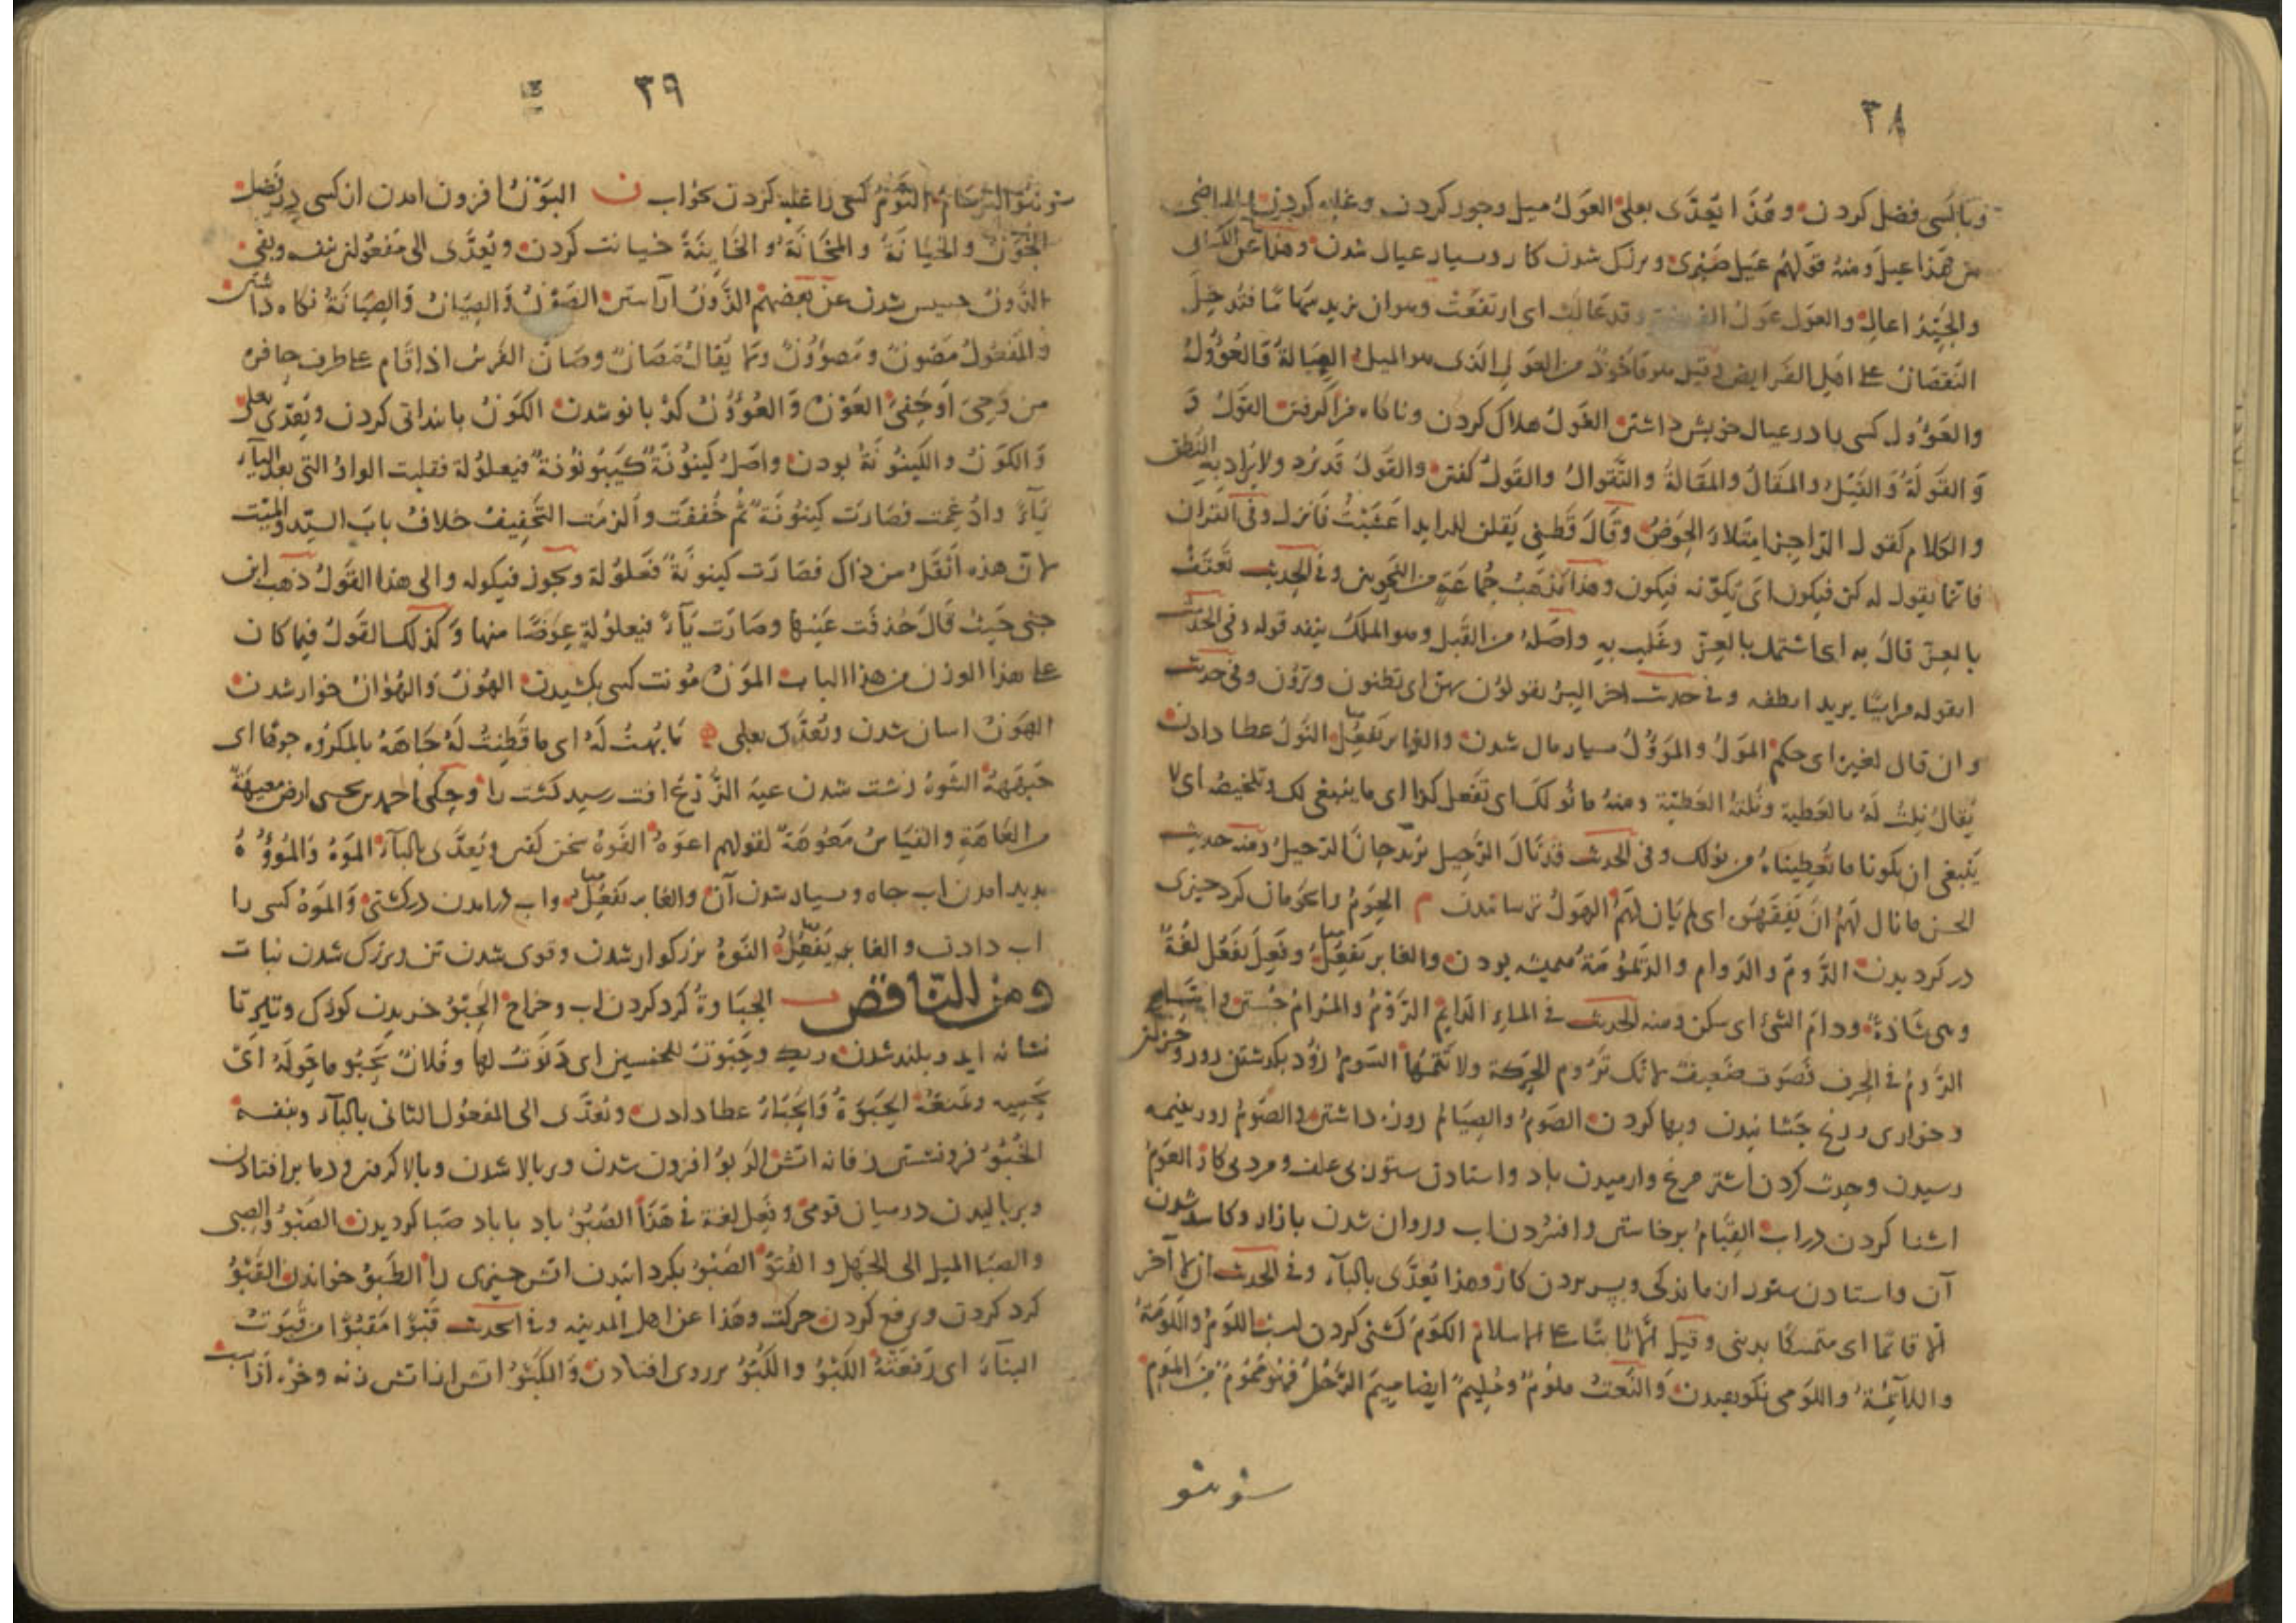 ٣٨
وبا کسی فضل کردن وهذا یعدّی بعلی العول میل وجور کردن وغلبه کردن والماضی
من هذا عیل ومنه قولهم عیل صبری وبزرک شدن کار وبسیار عیال شدن وهذا عن الکسائی
والجیّد اعال والعول عول الفریضة وقد عالت ای ارتفعت وهوان یزید سهامًا فیدخل
النقصان علی اهل الفرایض وقیل هو مأخوذ من العول الذی هو المیل العیالة والعوول
والعوول کسی را در عیال خویش داشتن الغول هلاک کردن وناکاه فراکرفتن القول و
والقولة والقیل والمقال والمقالة والتقوال والقول کفتن والقول قد یرد ولا یراد به النطق
والکلام کقول الراجز امتلاء الحوض وقال قطنی یقلن للراید اعشبت فانزل وفی القران
فانما یقول له کن فیکون ای یکوّنه فیکون وهذا مذهب جماعة من النحویین وفی الحدیث تعطف
بالعزّ قال به ای اشتمل بالعزّ وغلب به واصله من القیل وهو الملک ینفذ قوله وفی الحدیث
اتقوله مرائیًا یرید اتظنه وفی حدیث اخر البرّ تقولون بهن ای تظنون وترون وفی حدیث
وان قال لغیره ای حکم المول والموول بسیار مال شدن والغابر یفعل النول عطا دادن
یقال نلت له بالعطیة ونلته العطیّة ومنه ما نولک ای تفعل کذا ای ما ینبغی لک وتلخیصه ای لا
ینبغی ان یکون ما تعطیناه من نولک وفی الحدیث قد نال الرحیل
الحسن ما نال لهم ان یفقهوا ای لم یأن لهم الهول ترسانیدن م الحوم
در کرد بدن الدوم والدوام والدیمومة همیشه بودن والغابر یفعل وفعل یفعل لغة
وهی شاذة ودام الشئ ای سکن ومنه الحدیث فی الماء الدایم الروم والمرام جستن
الروم فی الحرف فصوت ضعیف لانک تروم الحرکة ولا تتمها السوم زود بکذشتن
وخواری ورنج چشانیدن وبها کردن الصوم والصیام روزه داشتن والصوم روز بنیمه
رسیدن وحدث کردن اشتر مرغ وارمیدن باد واستادن ستور بی علف ومرد بی کار العوم
اشنا کردن در اب القیام برخاستن وافسردن اب وروان شدن بازار وکاسد شدن
آن واستادن ستور از ماندکی وبسر بردن کار وهذا یعدّی بالباء وفی الحدیث ان لا آخر
الا قائما ای متمسکا بدینی وقیل الا ثابتا علی الاسلام الکوم کشنی کردن اسب اللوم واللومة
واللائمة واللومی نکوهیدن والنعت ملوم وملیم ایضا میم الرجل فهو مموم من الموم
ش و هو
٣٩
البرسام النوم کسی را غلبه کردن بخواب ن البون افزون امدن از کسی در فضل
الخون والخیانة والمخانة والخاینة خیانت کردن ویعدّی الی مفعولین بنفسه وبفی
الدون خسیس شدن عن بعضهم الزون آراستن الصون والصیان والصیانة نکاه داشتن
والمفعول مصون ومصوون وما یقال مصان وصان الفرس اذا قام علی طرف حافره
من وجی او حفی العون والعوون کدبانو شدن الکون پاینداتی کردن ویعدّی بعلی
والکون والکینونة بودن واصل کینونة کیونونة فیعلولة فقلبت الواو التی بعد الیاء
یاءً وادغمت فصارت کینونة ثم خففت والزمت التخفیف خلاف باب السید والمیت
لان هذه اثقل من ذاک فصارت کینونة فعلولة ویجوز فیکوله والی هذا القول ذهب ابن
جنی حیث قال حذفت عینها وصارت یاء فیعلولة عوضًا منها وکذلک القول فیما کان
علی هذا الوزن من هذا الباب المون مونت کسی بکشیدن الهون والهوان خوار شدن
الهون اسان شدن ویعدّی بعلی ه ما بهت له ای ما فطنت له جاهه بالمکروه جوها ای
جبهه الشوه زشت شدن عیه الزرع افت رسید کشت را وحکی احمد بن یحیی ارض معیهة
من العاهة والقیاس معوهة لقولهم اعوه الفوه سخن کفتن ویعدّی بالباء الموه والمووه
پدید امدن اب جاه وبسیار شدن آن والغابر یفعل واب درامدن در کشتی والموه کسی را
اب دادن والغابر یفعل النوه بزرکوار شدن وقوی شدن تن وبزرک شدن نبات
ومن الناقص ب الجباوة کرد کردن اب وخراج الحبو خزیدن کودک وتیر تا
نشانه اید وبلند شدن ریک وحبوت للخمسین ای دنوت لها وفلان یحبو ما حوله ای
یحمیه ویمنعه الحبوة والحباء عطا دادن ویعدّی الی المفعول الثانی بالباء وبنفسه
الخبو فرونشستن زفانه اتش الربو افزون شدن وبر بالا شدن وبالا کرفتن ودما برافتادن
وبربالیدن در میان قومی وفعل لغة فی هذا الصبو باد با باد صبا کردیدن الصبو والصبی
والصبا المیل الی الجهل والفتوّ الضبو بکردانیدن اتش چیزی را الطبو خواندن القبو
کرد کردن ورفع کردن حرکت وهذا عن اهل المدینه وفی الحدیث قبوًا مقبوًا من قبوت
البناء ای رفعته الکبو والکبوّ بر روی افتادن والکبو اتش از اتش زنه